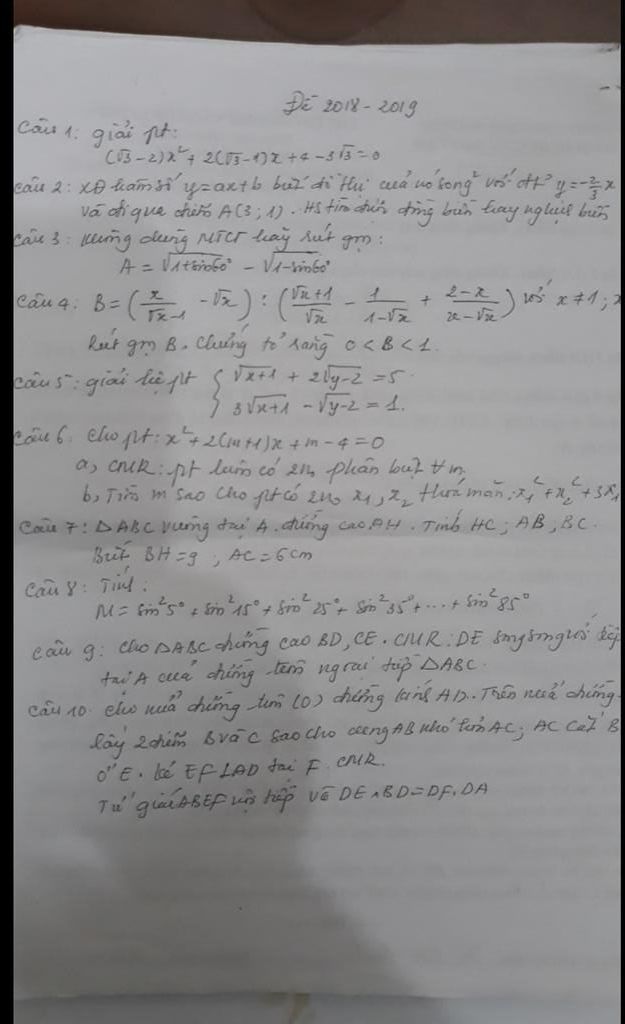 Đề 2018 - 2019
Câu 1: giải pt:
(√3 - 2)x² + 2(√3 - 1)x + 4 - 3√3 = 0
Câu 2: XĐ hàm số y = ax + b biết đồ thị của nó song² với đt y = -2/3 x
và đi qua điểm A(3; 1). HS tìm được đồng biến hay nghịch biến
Câu 3: Không dùng MTCT hãy rút gọn:
A = √(1+sin60°) - √(1-sin60°)
Câu 4: B = (x/(√x-1) - √x) : ((√x+1)/√x - 1/(1-√x) + (2-x)/(x-√x)) với x ≠ 1; x
Rút gọn B. Chứng tỏ rằng 0 < B < 1.
Câu 5: giải hệ pt { √(x+1) + 2√(y-2) = 5
3√(x+1) - √(y-2) = 1.
Câu 6: Cho pt: x² + 2(m+1)x + m - 4 = 0
a, CMR: pt luôn có 2n₀ phân biệt ∀m
b, Tìm m sao cho pt có 2n₀ x₁, x₂ thoả mãn: x₁² + x₂² + 3x₁
Câu 7: ΔABC vuông tại A. đường cao AH. Tính HC; AB; BC.
Biết BH = 9; AC = 6cm
Câu 8: Tính:
M = sin²5° + sin²15° + sin²25° + sin²35° + ... + sin²85°
Câu 9: Cho ΔABC đường cao BD, CE. CMR: DE song song với tiếp
tại A của đường tròn ngoại tiếp ΔABC.
Câu 10. Cho nửa đường tròn (O) đường kính AD. Trên nửa đường
lấy 2 điểm B và C sao cho cung AB nhỏ hơn AC; AC cắt B
ở E. kẻ EF ⊥ AD tại F. CMR.
Tứ giác ABEF nội tiếp và DE.BD = DF.DA